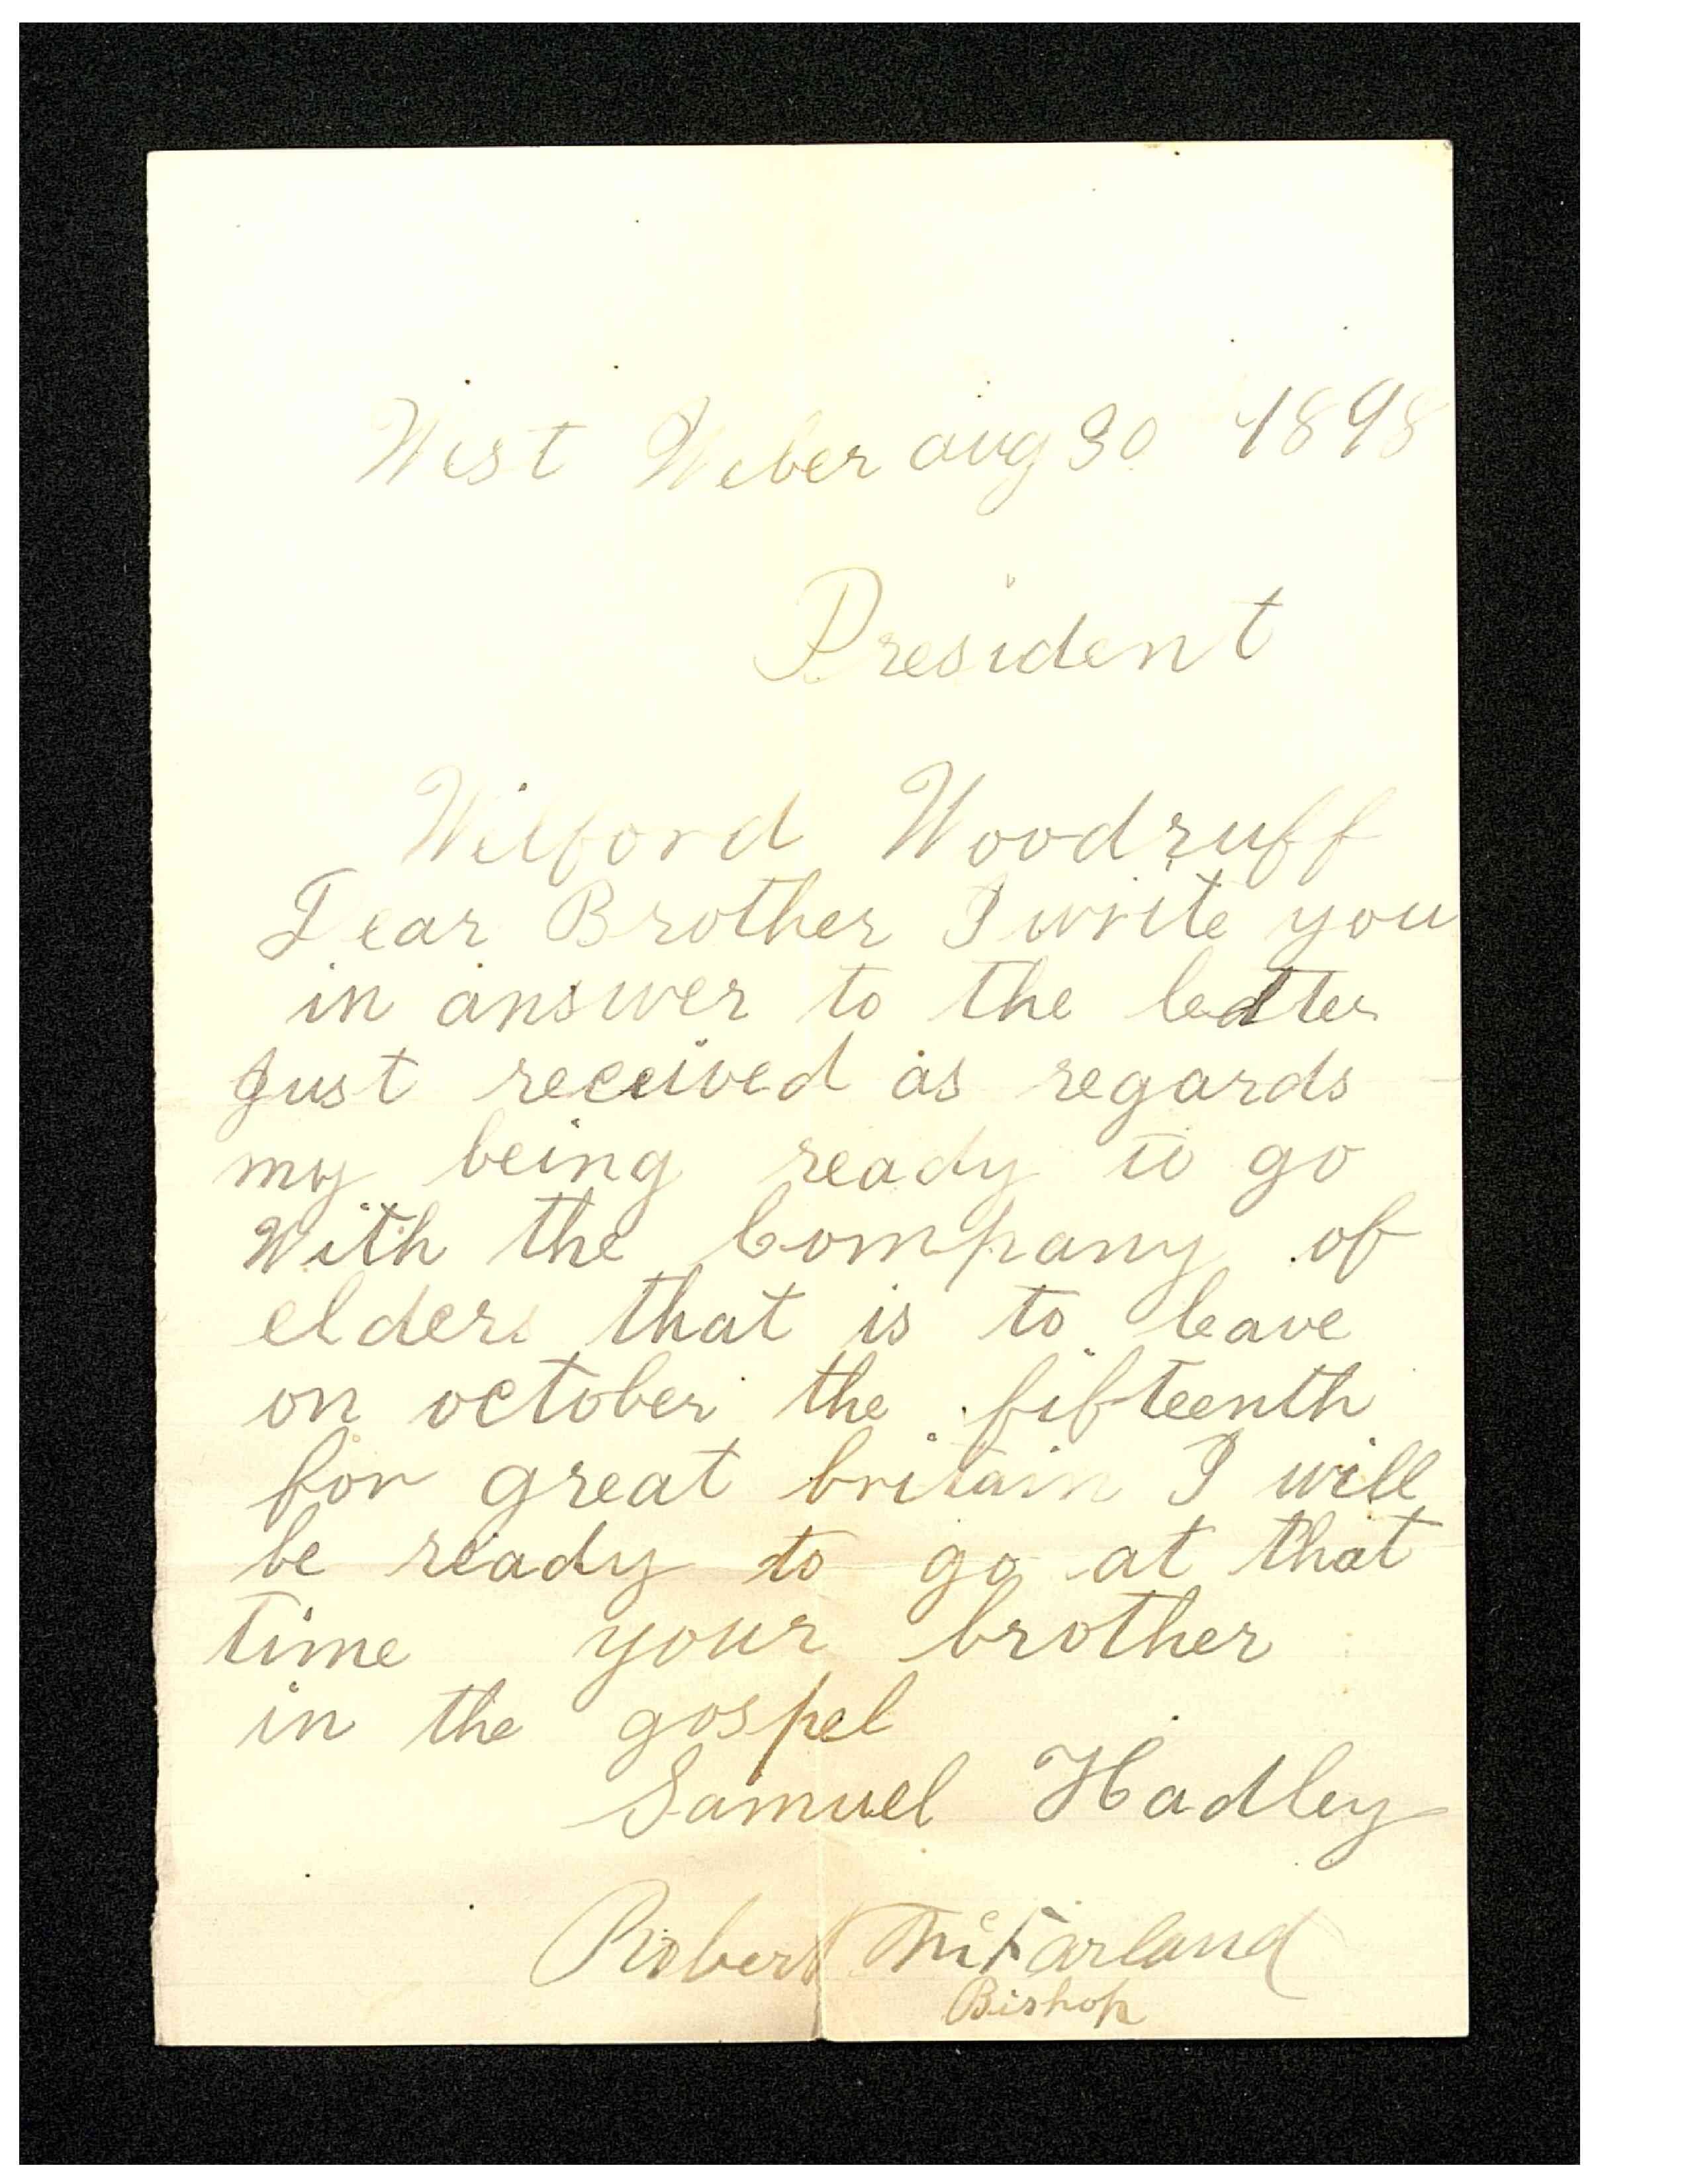 West Weber aug 30 1898
President
Wilford Woodruff
Dear Brother I write you
in answer to the letter
Just received as regards
my being ready to go
With the Company of
elders that is to leave
on october the fifteenth
for great britain I will
be ready to go at that
time your brother
in the gospel
Samuel Hadley
Robert McFarland
Bishop